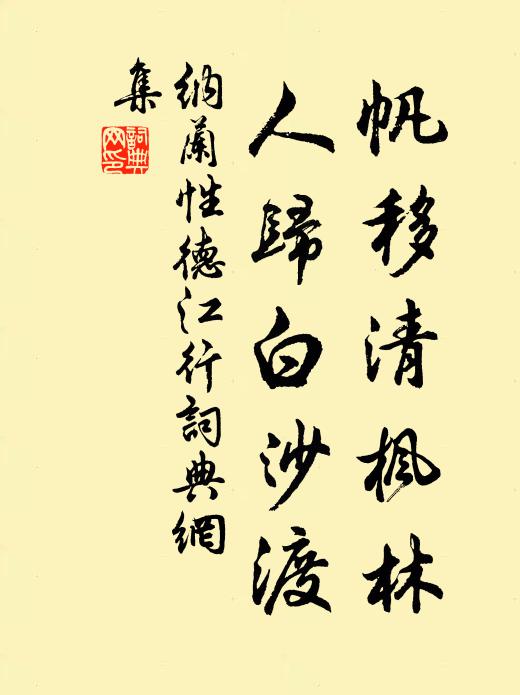 帆移清楓林
人歸白沙渡
納蘭性德江行詞典網
集
詞典網印